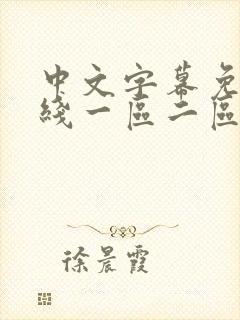 中文字幕免
綫一區二區
徐晨霞